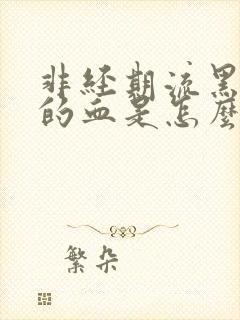 非经期流黑
的血是怎麼
繁朵